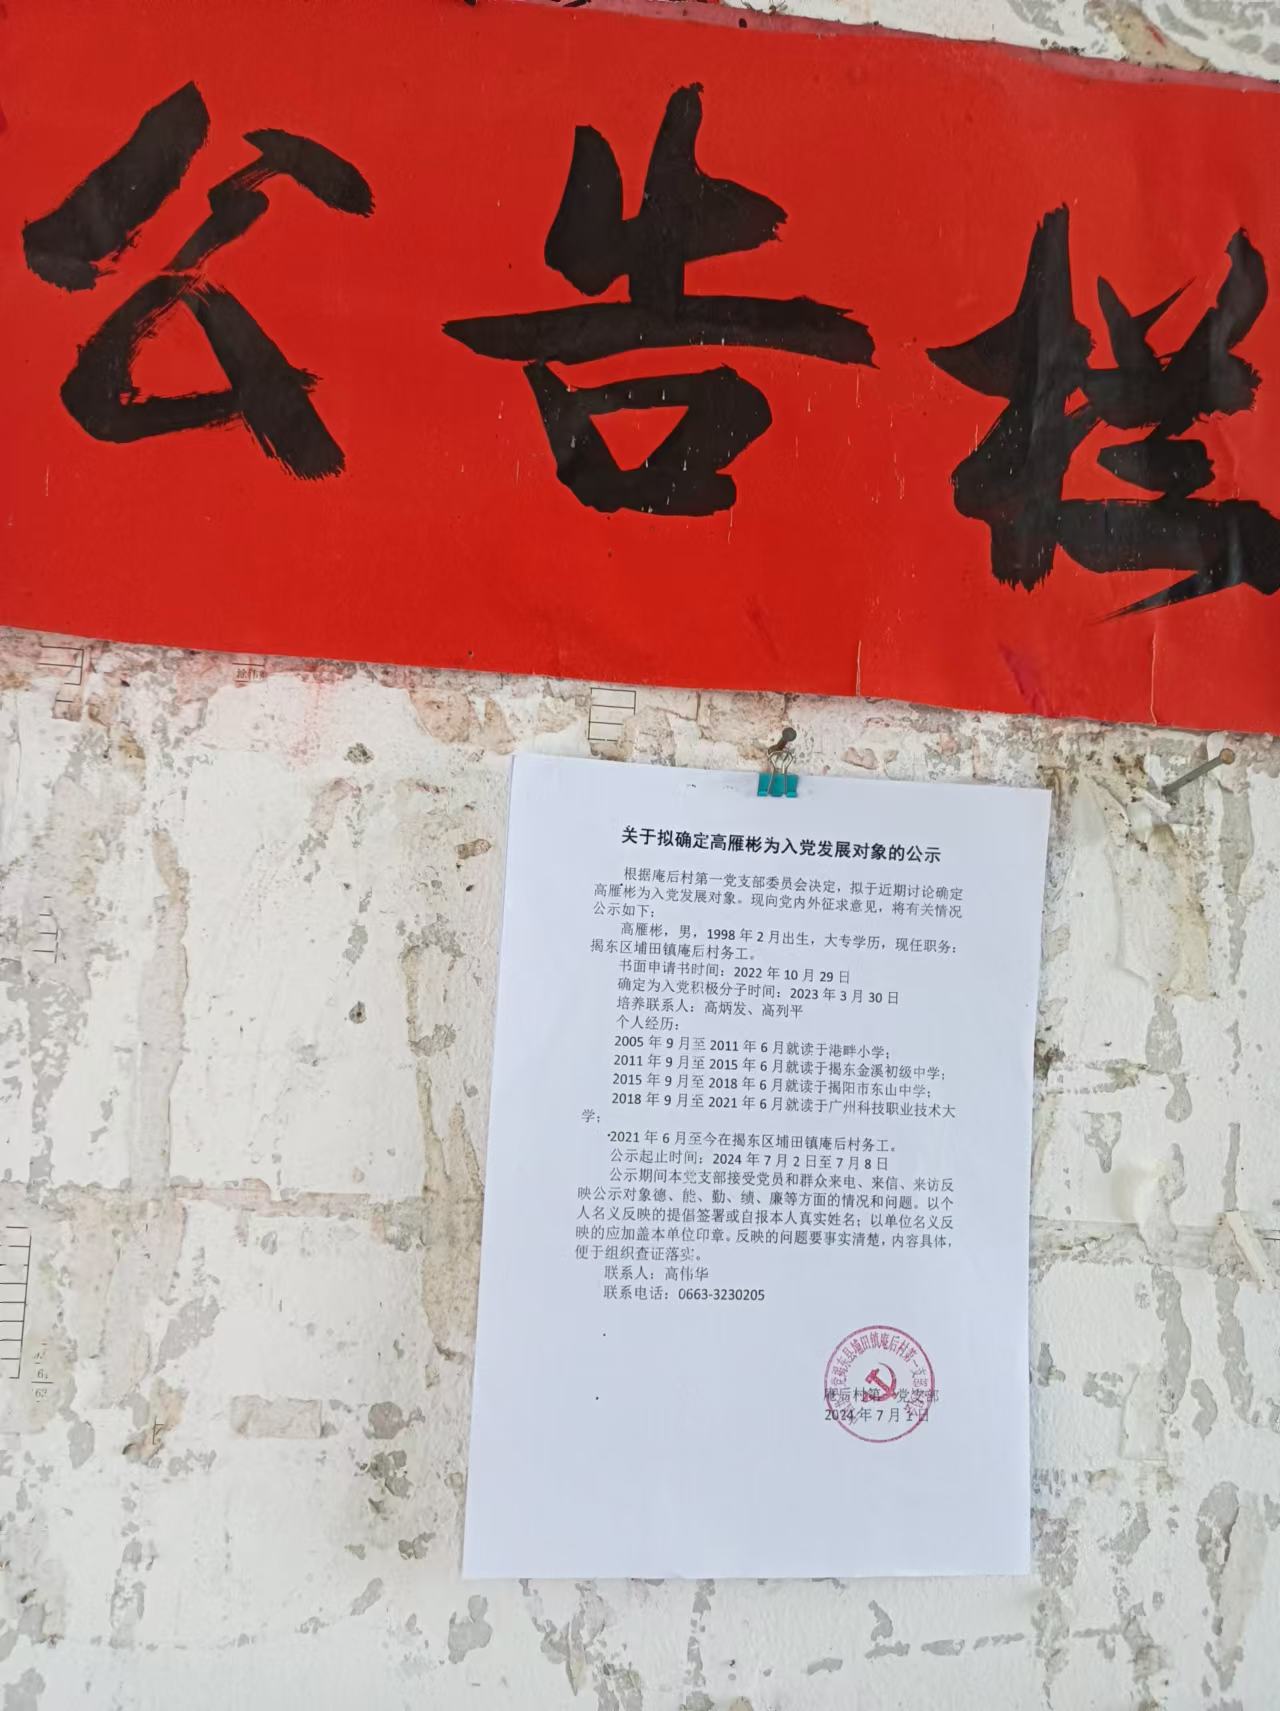 公告栏
关于拟确定高雁彬为入党发展对象的公示
根据庵后村第一党支部委员会决定，拟于近期讨论确定
高雁彬为入党发展对象。现向党内外征求意见，将有关情况
公示如下：
高雁彬，男，1998年2月出生，大专学历，现任职务：
揭东区埔田镇庵后村务工。
书面申请书时间：2022年10月29日
确定为入党积极分子时间：2023年3月30日
培养联系人：高炳发、高列平
个人经历：
2005年9月至2011年6月就读于港畔小学；
2011年9月至2015年6月就读于揭东金溪初级中学；
2015年9月至2018年6月就读于揭阳市东山中学；
2018年9月至2021年6月就读于广州科技职业技术大
学；
2021年6月至今在揭东区埔田镇庵后村务工。
公示起止时间：2024年7月2日至7月8日
公示期间本党支部接受党员和群众来电、来信、来访反
映公示对象德、能、勤、绩、廉等方面的情况和问题。以个
人名义反映的提倡签署或自报本人真实姓名；以单位名义反
映的应加盖本单位印章。反映的问题要事实清楚，内容具体，
便于组织查证落实。
联系人：高伟华
联系电话：0663-3230205
揭东县埔田镇庵后村第一支部
庵后村第一党支部
2024年7月1日